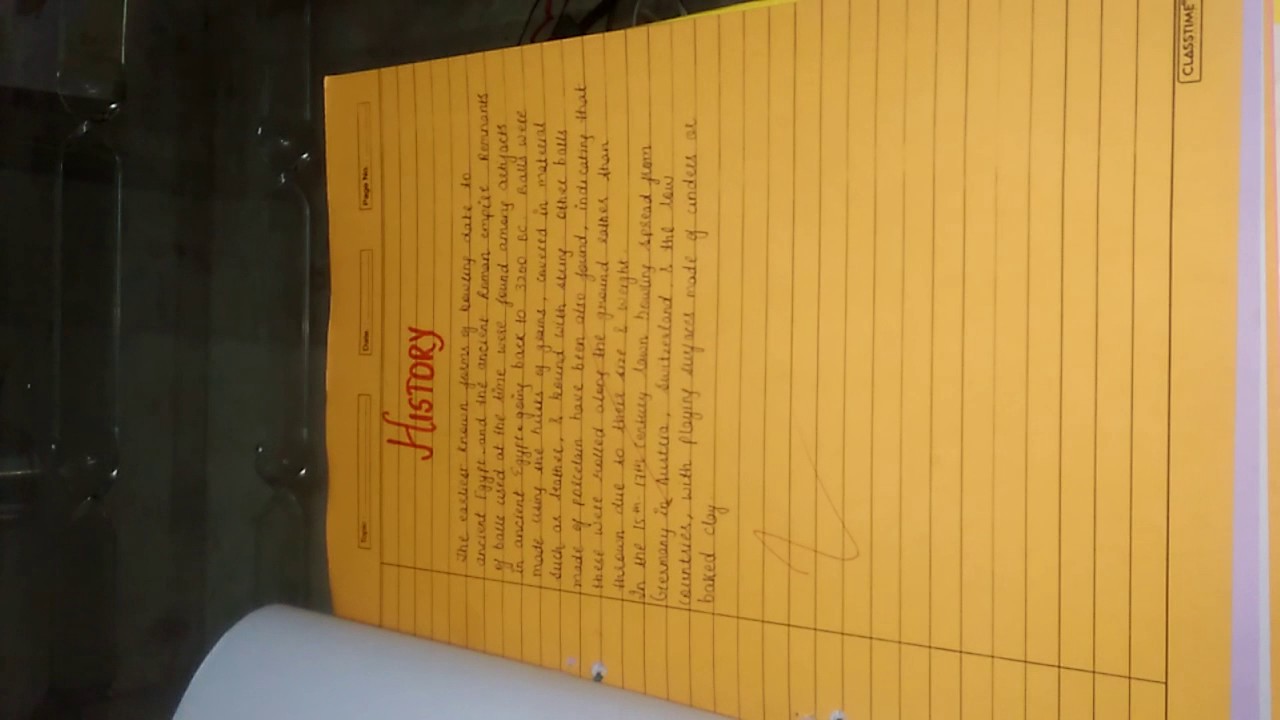 Topic
Date
Page No.
HISTORY
The earliest known forms of bowling date to
ancient Egypt and the ancient Roman empire. Remnants
of balls used at the time were found among artifacts
in ancient Egypt going back to 3200 BC. Balls were
made using the husks of grains, covered in material
such as leather, & bound with string. Other balls
made of porcelain have been also found, indicating that
these were rolled along the ground rather than
thrown due to their size & weight.
In the 15th-17th Century lawn bowling spread from
Germany in Austria, Switzerland & the low
countries, with playing surfaces made of cinders or
baked clay.
CLASSTIME